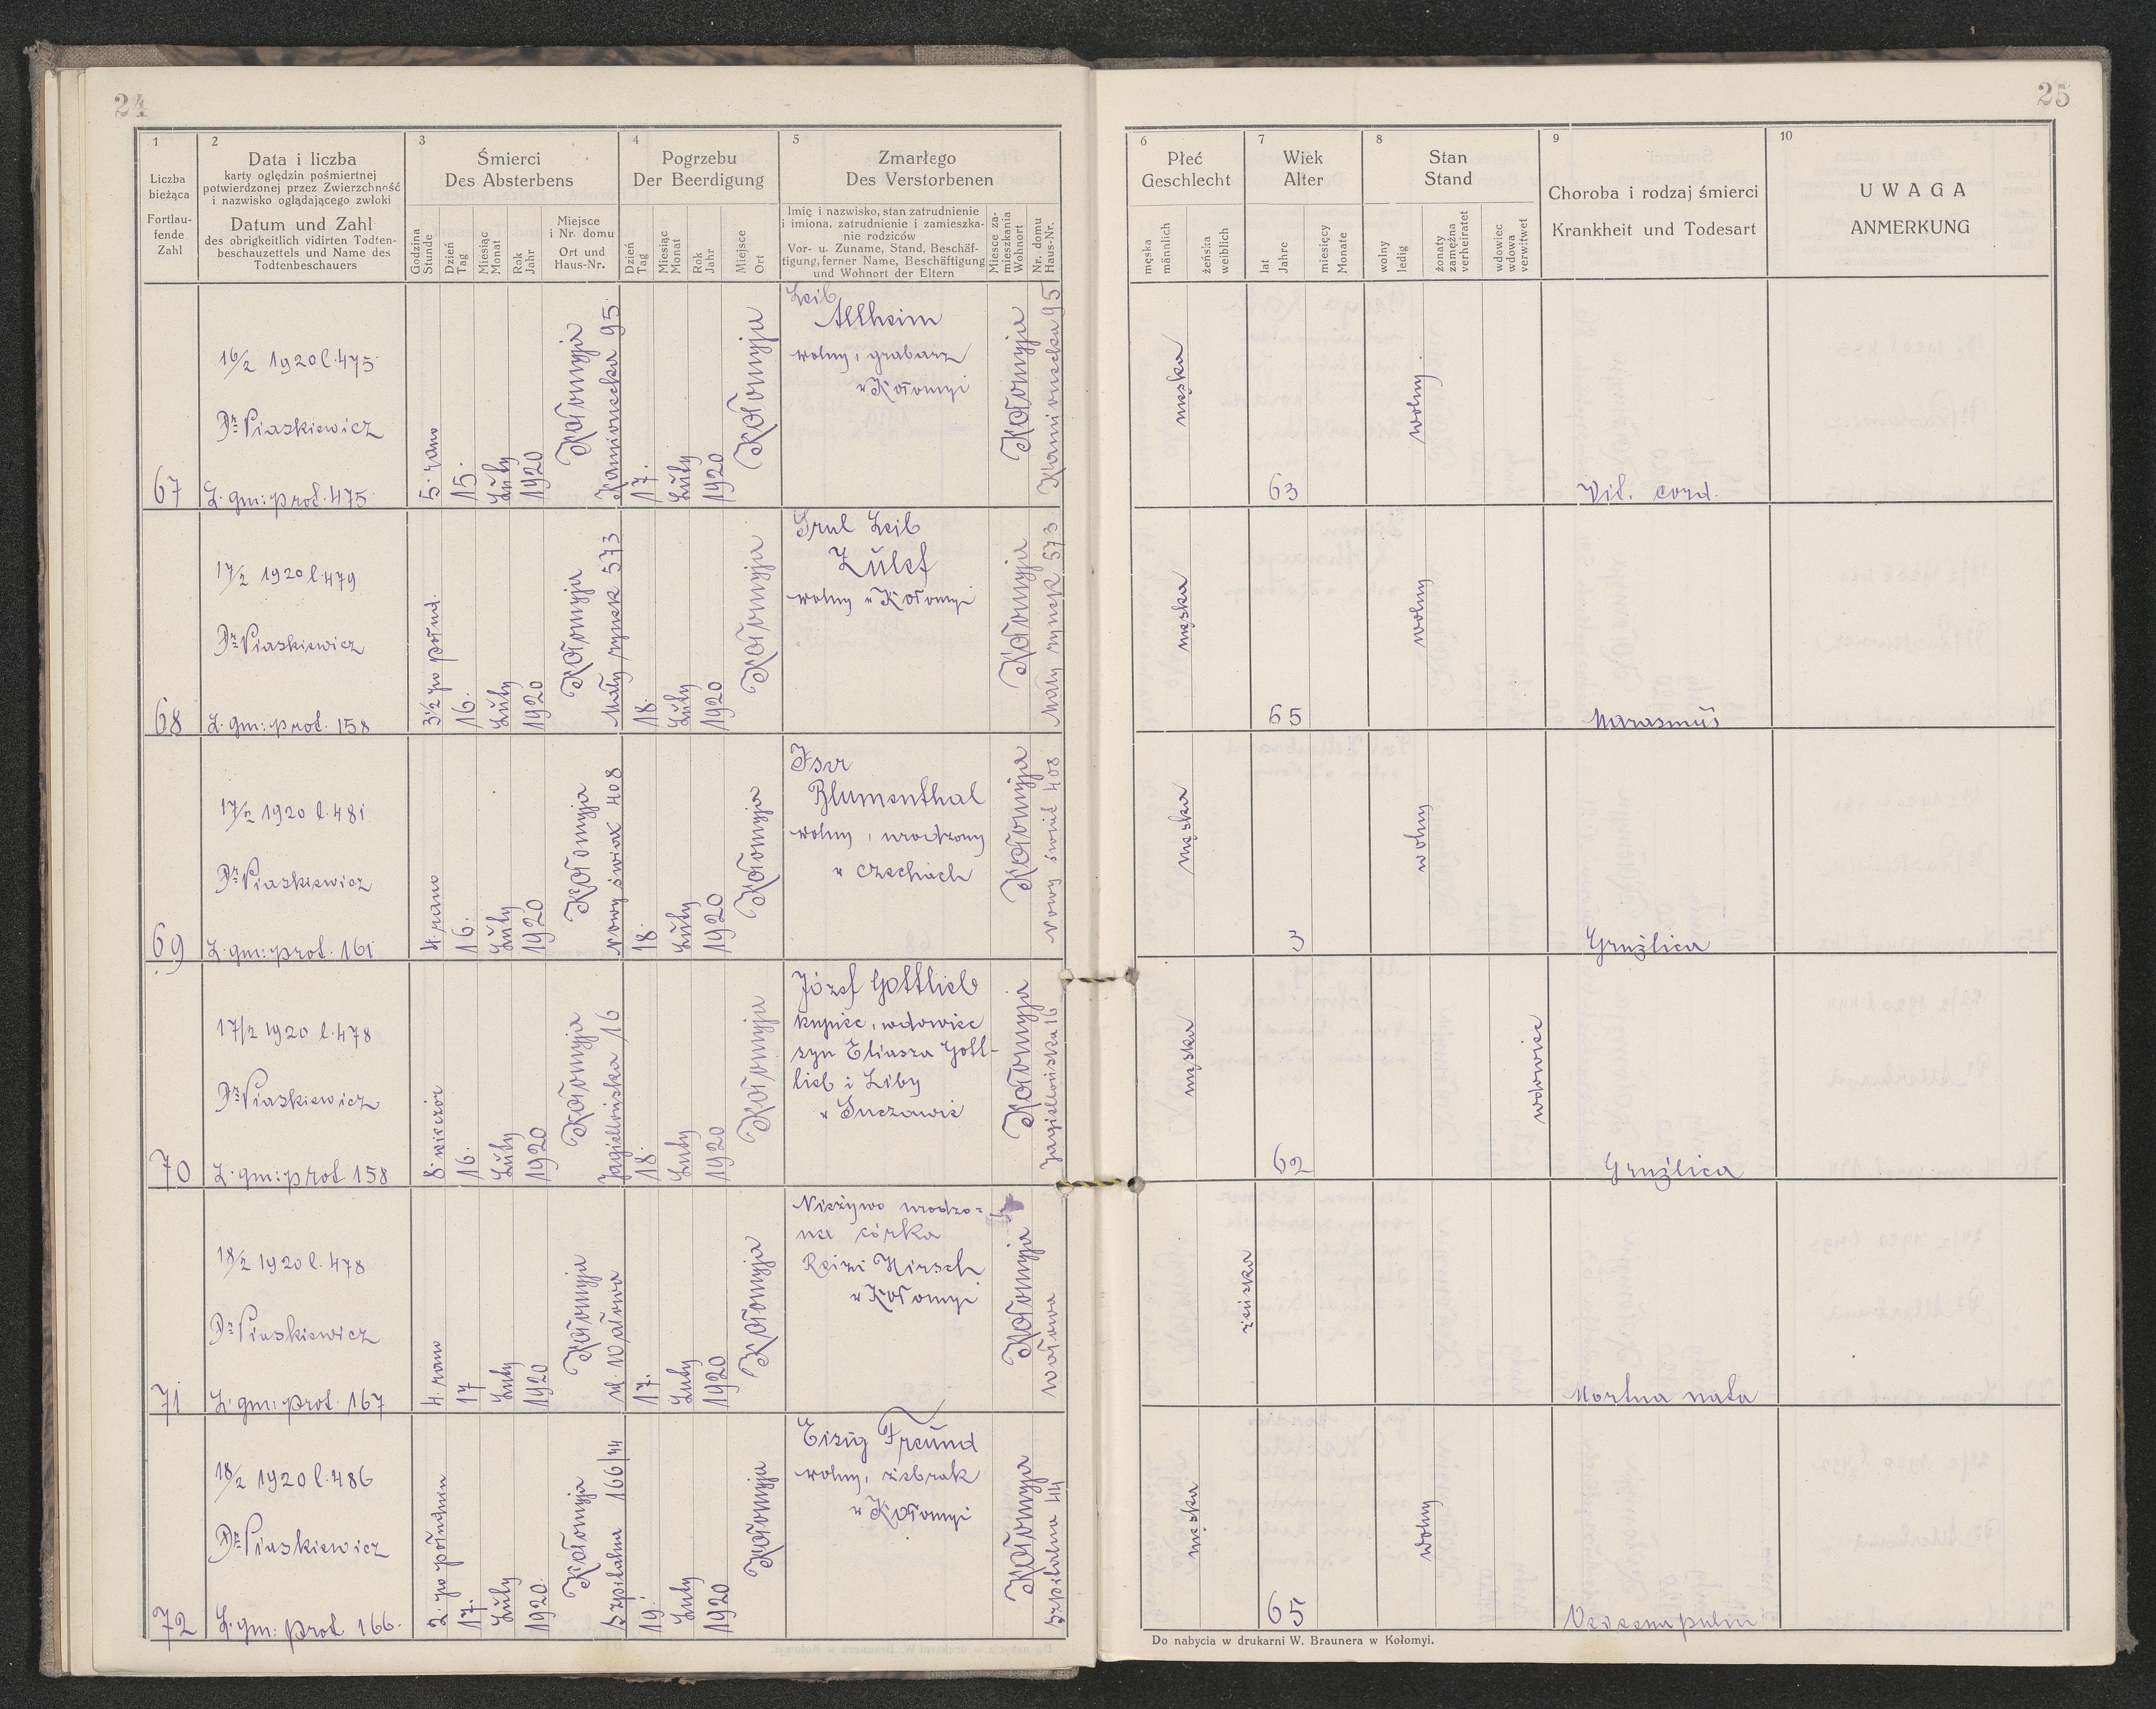 24
1
Liczba
bieżąca
Fortlau-
fende
Zahl
2
Data i liczba
karty oględzin pośmiertnej
potwierdzonej przez Zwierzchność
i nazwisko oglądającego zwłoki
Datum und Zahl
des obrigkeitlich vidirten Todten-
beschauzettels und Name des
Todtenbeschauers
3
Śmierci
Des Absterbens
Godzina
Stunde
Dzień
Tag
Miesiąc
Monat
Rok
Jahr
Miejsce
i Nr. domu
Ort und
Haus-Nr.
4
Pogrzebu
Der Beerdigung
Dzień
Tag
Miesiąc
Monat
Rok
Jahr
Miejsce
Ort
5
Zmarłego
Des Verstorbenen
Imię i nazwisko, stan zatrudnienie
i imiona, zatrudnienie i zamieszka-
nie rodziców
Vor- u. Zuname, Stand, Beschäf-
tigung, ferner Name, Beschäftigung
und Wohnort der Eltern
Miejsce za-
mieszkania
Wohnort
Nr. domu
Haus-Nr.
67
16/2 1920 l. 475
Dr Piaskiewicz
L. gm: prot. 475
5. rano
15.
Luty
1920
Kołomyja
Kamionecka 95
17.
Luty
1920
Kołomyja
Leib
Allheim
wolny, grabarz
w Kołomyi
Kołomyja
Kamionecka 95
68
17/2 1920 l. 479
Dr Piaskiewicz
L. gm: prot. 158
3½ po połud.
16.
Luty
1920
Kołomyja
Mały rynek 573
18.
Luty
1920
Kołomyja
Srul Leib
Zulef
wolny w Kołomyi
Kołomyja
Mały rynek 573
69
17/2 1920 l. 481
Dr Piaskiewicz
L. gm: prot. 161
4. rano
16.
Luty
1920
Kołomyja
Nowy świat 408
18.
Luty
1920
Kołomyja
Iser
Blumenthal
wolny, urodzony
w Czechach
Kołomyja
Nowy świat 408
70
17/2 1920 l. 478
Dr Piaskiewicz
L. gm: prot 158
8. wieczór
16.
Luty
1920
Kołomyja
Jagiellońska 16
18.
Luty
1920
Kołomyja
Józef Gottlieb
kupiec, wdowiec
syn Eliasza Gott-
lieb i Liby
w Suczawie
Kołomyja
Jagiellońska 16
71
18/2 1920 l. 478
Dr Piaskiewicz
L. gm: prot. 167
4. rano
17
Luty
1920
Kołomyja
ul. Wałowa
17.
Luty
1920
Kołomyja
Nieżywo urodzo=
na córka
Reizi Hirsch
w Kołomyi
Kołomyja
Wałowa
72
18/2 1920 l. 486
Dr Piaskiewicz
L. gm: prot 166.
2. po południu
17.
Luty
1920.
Kołomyja
Szpitalna 166/44
19.
Luty
1920
Kołomyja
Eisig Freund
wolny, żebrak
w Kołomyi
Kołomyja
Szpitalna 44
25
6
Płeć
Geschlecht
męska
männlich
żeńska
weiblich
7
Wiek
Alter
lat
Jahre
miesięcy
Monate
8
Stan
Stand
wolny
ledig
żonaty
zamężna
verheiratet
wdowiec
wdowa
verwitwet
9
Choroba i rodzaj śmierci
Krankheit und Todesart
10
UWAGA
ANMERKUNG
męska
63
wolny
Vit. cord.
męska
65
wolny
Marasmus
męska
3
wolny
Gruźlica
męska
62
wdowiec
Gruźlica
żeńska
Mortua nata
męska
65
wolny
Do nabycia w drukarni W. Braunera w Kołomyi.